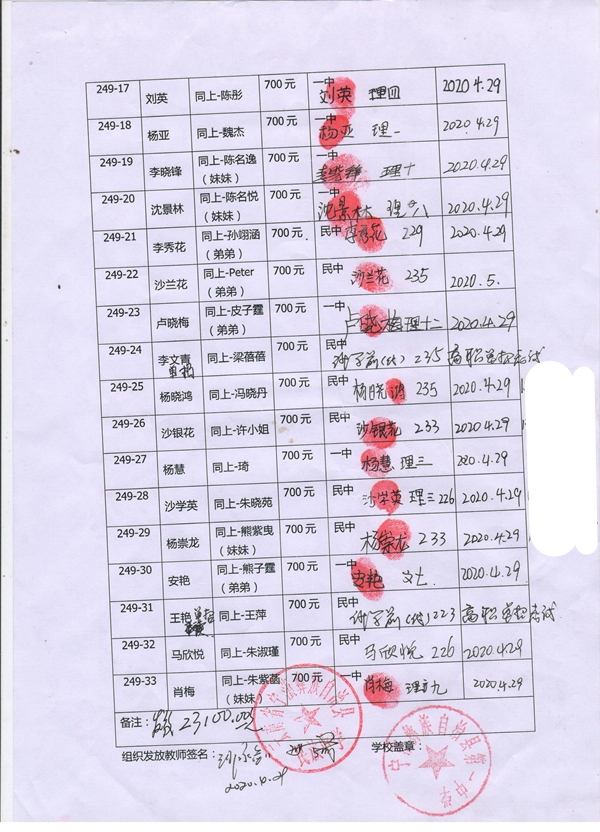 249-17 刘英 同上-陈彤 700元 一中 刘英 理四 2020.4.29
249-18 杨亚 同上-魏杰 700元 一中 杨亚 理一 2020.4.29
249-19 李晓锋 同上-陈名逸（妹妹） 700元 一中 理十 2020.4.29
249-20 沈景林 同上-陈名悦（妹妹） 700元 一中 沈景林 理八 2020.4.29
249-21 李秀花 同上-孙翊涵（弟弟） 700元 民中 李秀花 229 2020.4.29
249-22 沙兰花 同上-Peter（弟弟） 700元 民中 沙兰花 235 2020.5.
249-23 卢晓梅 同上-皮子霆（弟弟） 700元 一中 卢晓梅 理十二 2020.4.29
249-24 李文青 同上-梁蓓蓓 700元 民中 (代) 235 高职单招考试
249-25 杨晓鸿 同上-冯晓丹 700元 民中 杨晓鸿 235 2020.4.29
249-26 沙银花 同上-许小姐 700元 民中 沙银花 233 2020.4.29
249-27 杨慧 同上-琦 700元 一中 杨慧 理三 220.4.29
249-28 沙学英 同上-朱晓苑 700元 民中 沙学英 理三 226 2020.4.29
249-29 杨崇龙 同上-熊紫曳（妹妹） 700元 民中 杨崇龙 233 2020.4.29
249-30 安艳 同上-熊子霆（弟弟） 700元 一中 安艳 文七 2020.4.29
249-31 王艳 同上-王萍 700元 民中 (代) 223 高职单招考试
249-32 马欣悦 同上-朱淑瑾 700元 民中 马欣悦 226 2020.4.29
249-33 肖梅 同上-朱紫菡（妹妹） 700元 一中 肖梅 理九 2020.4.29
备注： 23100.00元
组织发放教师签名： 学校盖章：